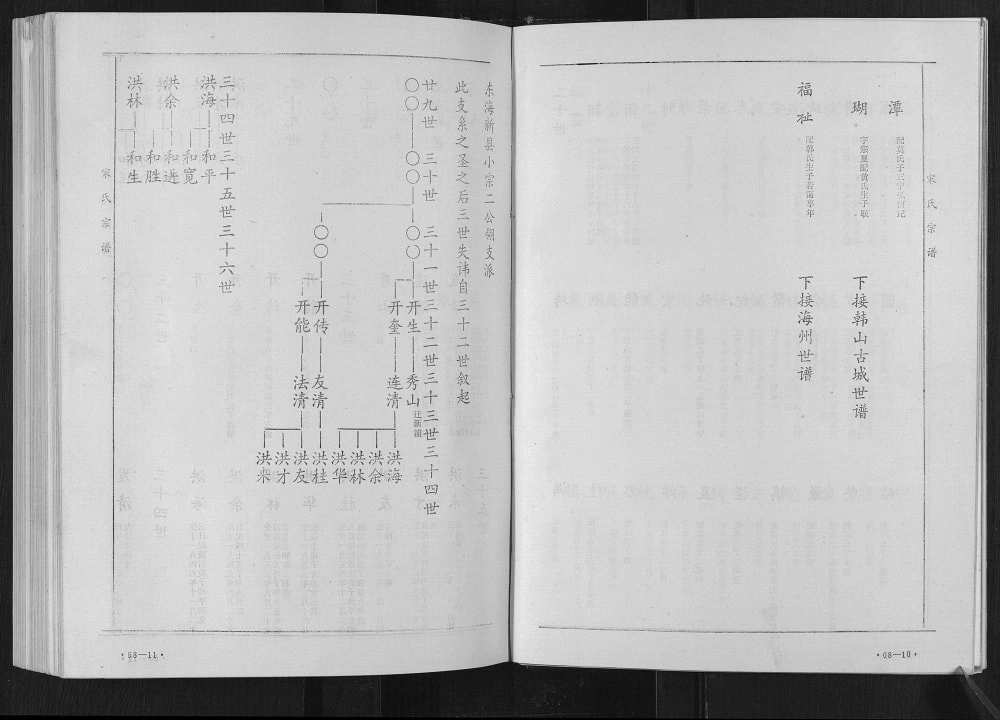 宋氏宗谱
潭
瑚
下接韩山古城世谱
福祉
配郭氏生子若海早年
下接海州世谱
·68—10·
东海新县小宗二公翎支派
此支系之圣之后三世失讳自三十二世叙起
廿九世 三十世 三十一世 三十二世 三十三世 三十四世
〇〇 〇〇 〇〇 开生 秀山 迁新浦
开奎 连清 洪海
洪余
洪林
洪华
〇〇 开传 友清 洪桂
开能 法清 洪友
洪才
洪来
三十四世 三十五世 三十六世
洪海 和平
和宽
洪余 和进
和胜
洪林 和生
宋氏宗谱
·68—11·